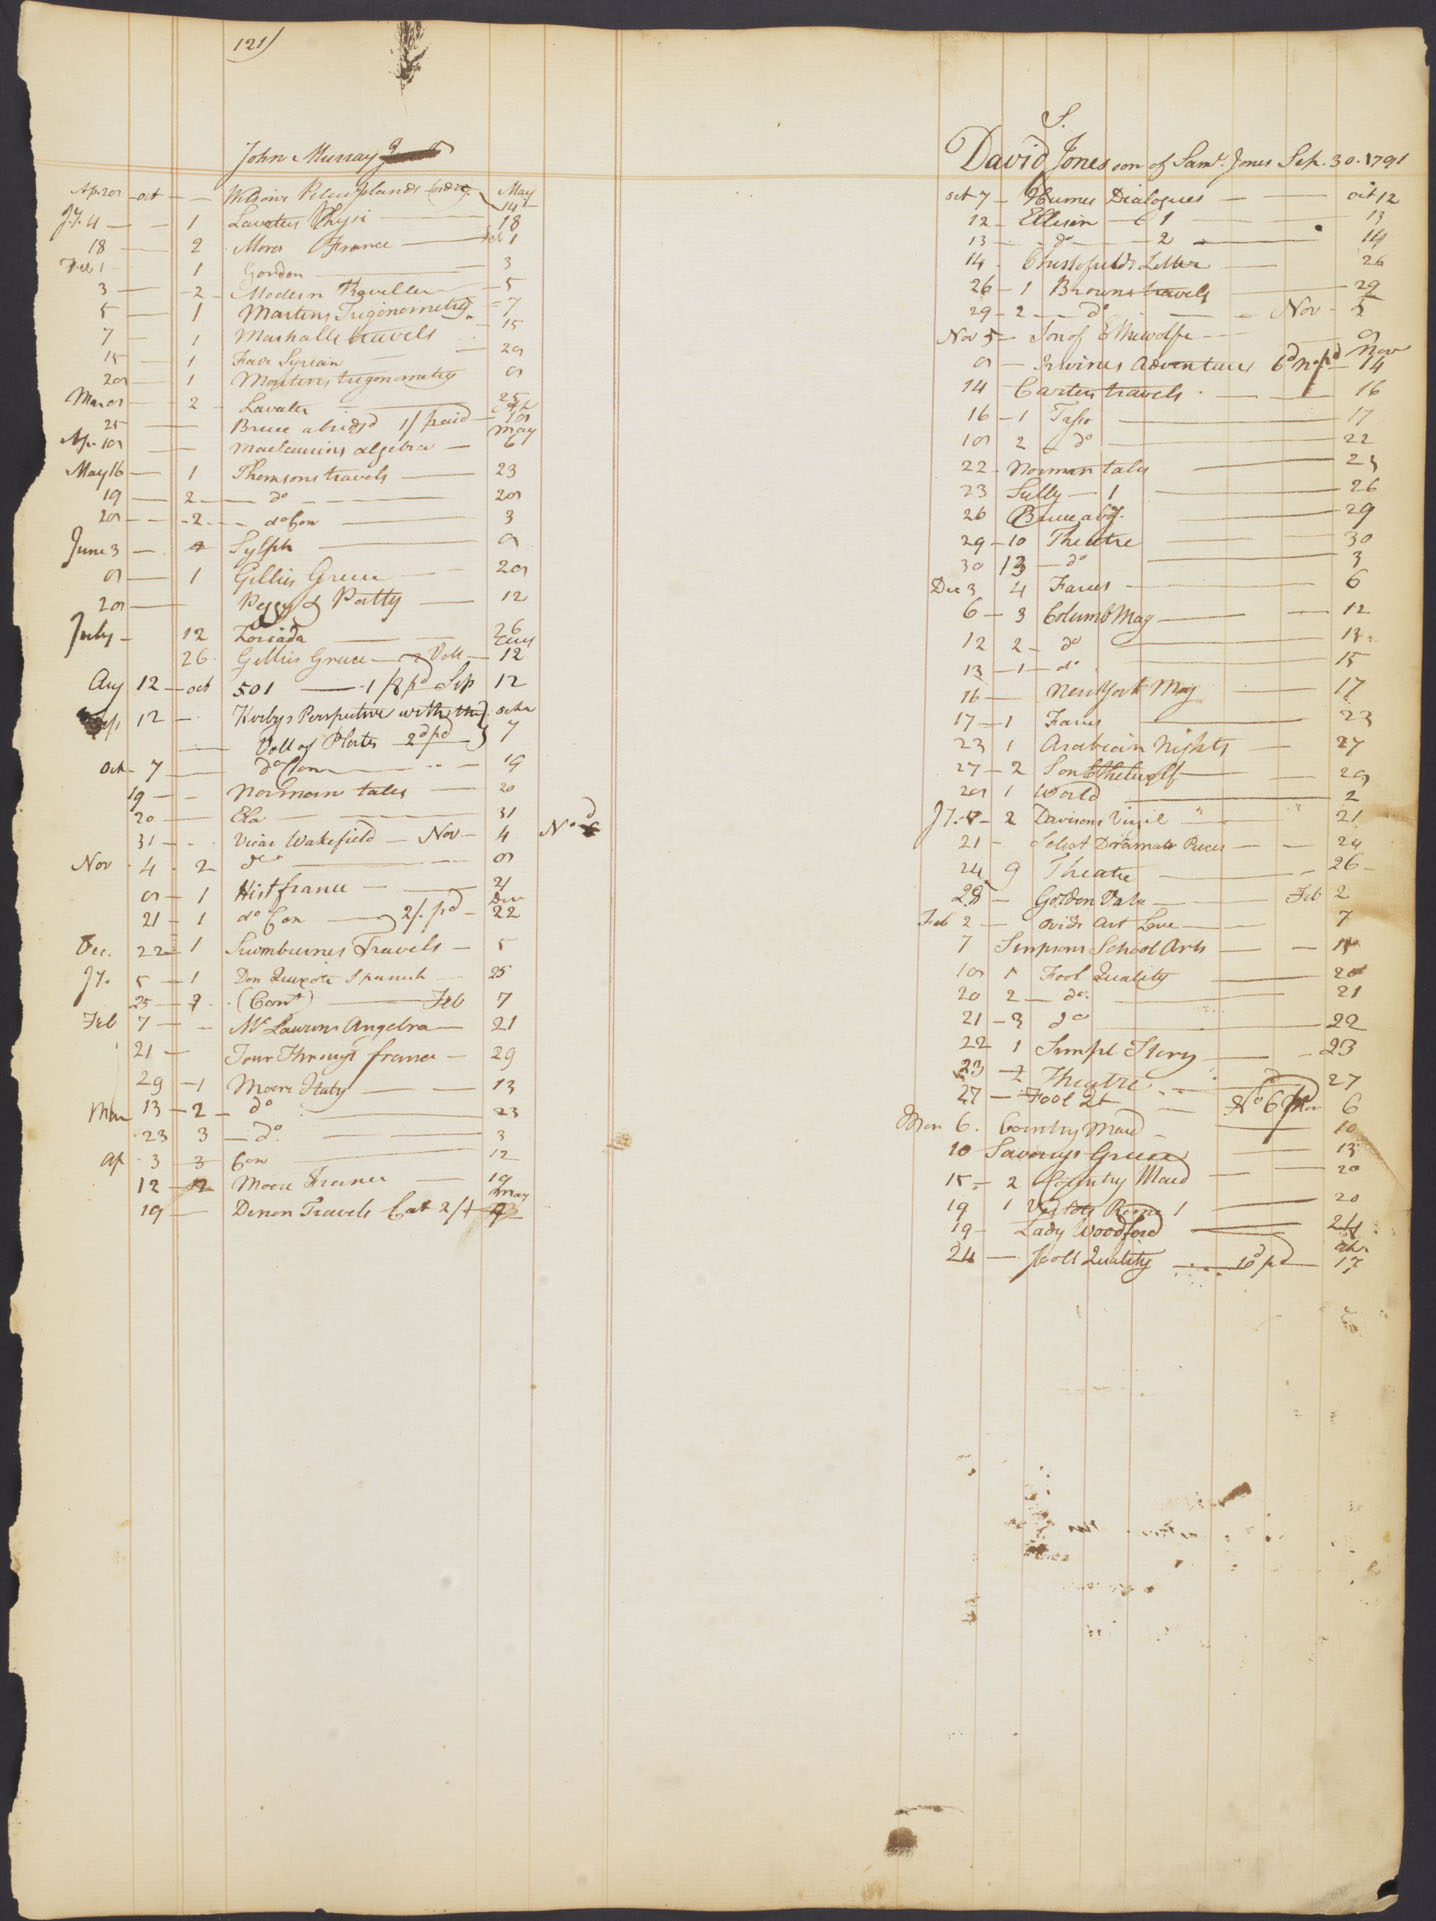 121)
John Murray
Ap 28 oct — Wilsons Pelew Islands May 14
Jy. 4 — 1 Lavaters Physi — 18
18 — 2 Mores France — Feb 1
Feb 1 1 Gordon — 3
3 — 2 Modern Traveller — 5
5 — 1 Martins Trigonometry — 7
7 — 1 Marshalls travels — 15
15 — 1 Fair Syrian — 28
28 — 1 Martins trigonometry 8
Mar 8 — 2 Lavater — 25
25 — Bruce abridgd 1/ paid —
Ap. 18 — Maclaurins algebra — May 6
May 16 — 1 Thomsons travels — 23
19 — 2 — do — 28
28 — 2 — do Con — 3
June 3 — Sylph — 8
8 — 1 Gillies Greece — 28
28 — Peggy & Patty — 12
July — 12 Zoriada — 26
26 Gillies Greece — 2 Voll — Aug 12
Aug 12 — oct 501 — 1/8 pd Sep 12
Sep 12 — Kirbys Perspective with the
Voll of Plates 2d pd } 7
Oct 7 — do Con — 19
19 — Norman tales — 20
20 — Ela — 31
31 — Vicar Wakefield — Nov — 4 No
Nov 4 2 do — 8
8 — 1 Hist france — 21
21 — 1 do Con — 2/. pd — Dec 22
Dec. 22 — 1 Swinburnes Travels — 5
Jy. 5 — 1 Don Quixote Spanish 25
25 — 2 (Cont) — Feb 7
Feb 7 — Mc Laurins Angebra — 21
21 — Tour Through france — 29
29 — 1 Moore Italy — 13
Mar 13 — 2 — do — 23
23 3 — do — 3
Ap 3 — 3 Con — 12
12 — Moore France — 19
19 — Denon Travels Cat 2/4 May
S.
David Jones son of Saml. Jones Sep. 30. 1791
oct 7 — Humes Dialogues — oct 12
12 — Ellison — 1 — 13
13 — do — 2 — 14
14 — Chesterfields Letter — 26
26 — 1 Browns travels — 29
29 — 2 — do — Nov — 5
Nov 5 — Son of Ethewolfe — 8
8 — Irwines Adventures 6d nopd — Nov 14
14 Carters travels — 16
16 — 1 Tasso — 17
18 2 do — 22
22 — Norman tales — 23
23 Sully — 1 — 26
26 Bruce abdg. — 29
29 — 10 Theatre — 30
30 13 — do — 3
Dec 3 4 Farces — 6
6 — 3 Columb Mag — 12
12 2 — do — 13
13 — 1 — do — 15
16 — New York Mag — 17
17 — 1 Farces — 23
23 1 Arabian Nights — 27
27 — 2 Son Ethelwolf — 28
28 1 World — 2
Jy. — 2 Davisons Virgil " " 21
21 — Select Dramatic Pieces — 24
24 9 Theatre — 26
28 — Golden Vale — Feb 2
Feb 2 — Ovids Art Love — 7
7 Simpsons School Arts —
18 1 Fool Quality — 20
20 2 — do. — 21
21 — 3 do — 22
22 1 Simpl Story — 23
23 — 2 Theatre — 27
27 — Fool Qt — No 6 Mar 6
Mar 6. Country Maid — 10
10 Savarys Greece — 15
15 — 2 Country Maid — 20
19 1 Vertots Rome 1 — 20
19 — Lady Woodford — 24
24 — Fooll Quality — 10d pd — 17